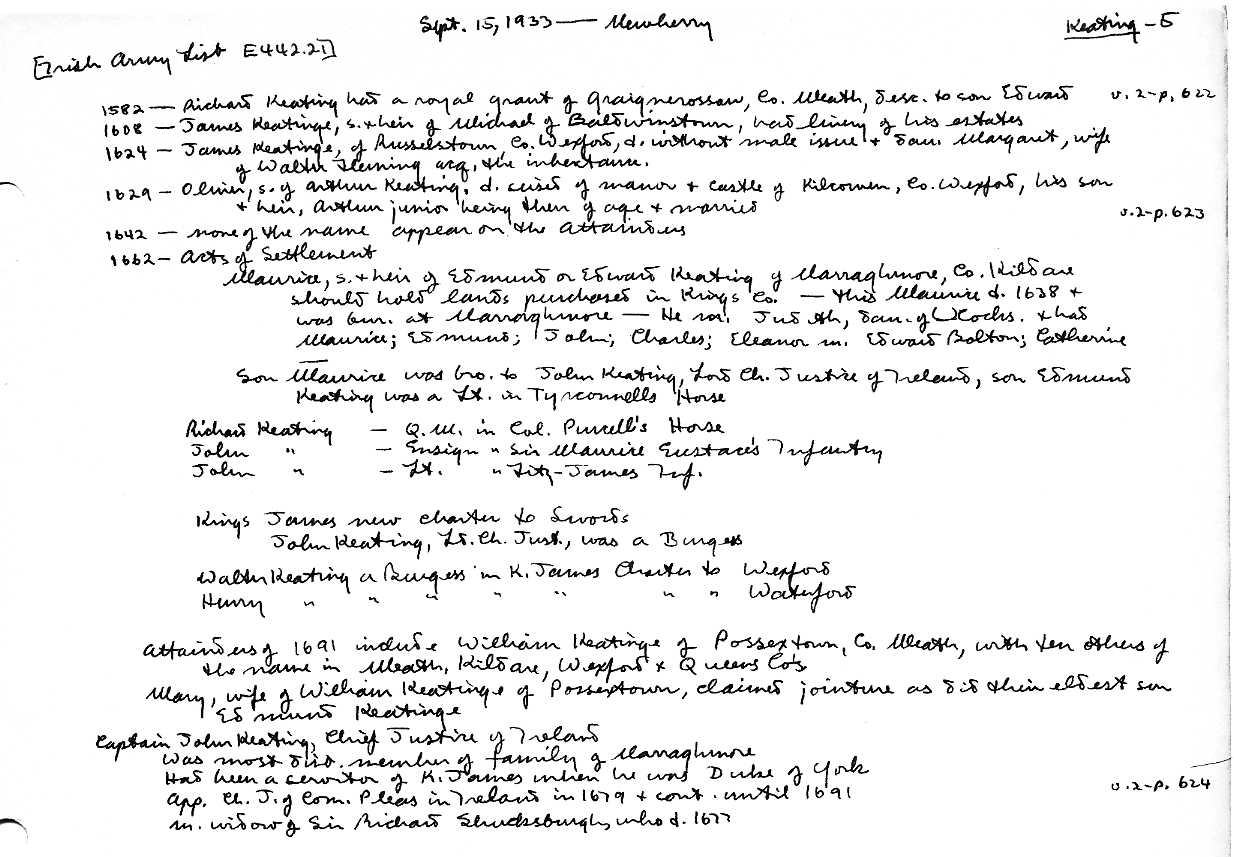 Sept. 15, 1933 — Newberry
Keating - 5
[Irish Army List E442.21]
1582 — Richard Keating had a royal grant of Graignerossaw, Co. Meath, desc. to son Edward v. 2-p. 622
1608 — James Keatinge, s. & heir of Michael of Baldwinstown, had livery of his estates
1624 — James Keatinge, of Russelstown, Co. Wexford, d. without male issue & dau. Margaret, wife
of Walter Fleming acq. the inheritance.
1629 — Oliver, s. of Arthur Keating, d. seised of manor & castle of Kilcowen, Co. Wexford, his son
& heir, Arthur junior being then of age & married
v. 2-p. 623
1642 — none of the name appear on the attainders
1662 — Acts of Settlement
Maurice, s. & heir of Edmund or Edward Keating of Narraghmore, Co. Kildare
should hold lands purchased in Kings Co. — this Maurice d. 1638 &
was bur. at Narraghmore — He m. Judith, dau. of & had
Maurice; Edmund; John; Charles; Eleanor m. Edward Bolton; Catherine
Son Maurice was bro. to John Keating, Lord Ch. Justice of Ireland, son Edmund
Keating was a Lt. in Tyrconnells Horse
Richard Keating — Q.M. in Col. Purcell's Horse
John " — Ensign " Sir Maurice Eustace's Infantry
John " — Lt. " Fitz-James Inf.
Kings James new charter to Swords
John Keating, Ld. Ch. Just., was a Burgess
Walter Keating a Burgess in K. James Charter to Wexford
Henry " " " " " " " Waterford
Attainders of 1691 include William Keatinge of Possextown, Co. Meath, with ten others of
the name in Meath, Kildare, Wexford & Queens Co's
Mary, wife of William Keatinge of Possextown, claimed jointure as did their eldest son
Edmund Keatinge
Captain John Keating, Chief Justice of Ireland
Was most dist. member of family of Narraghmore
Had been a servitor of K. James when he was Duke of York
App. Ch. J. of Com. Pleas in Ireland in 1679 & cont. until 1691 v. 2-p. 624
m. widow of Sir Richard Shucksburgh, who d. 1677